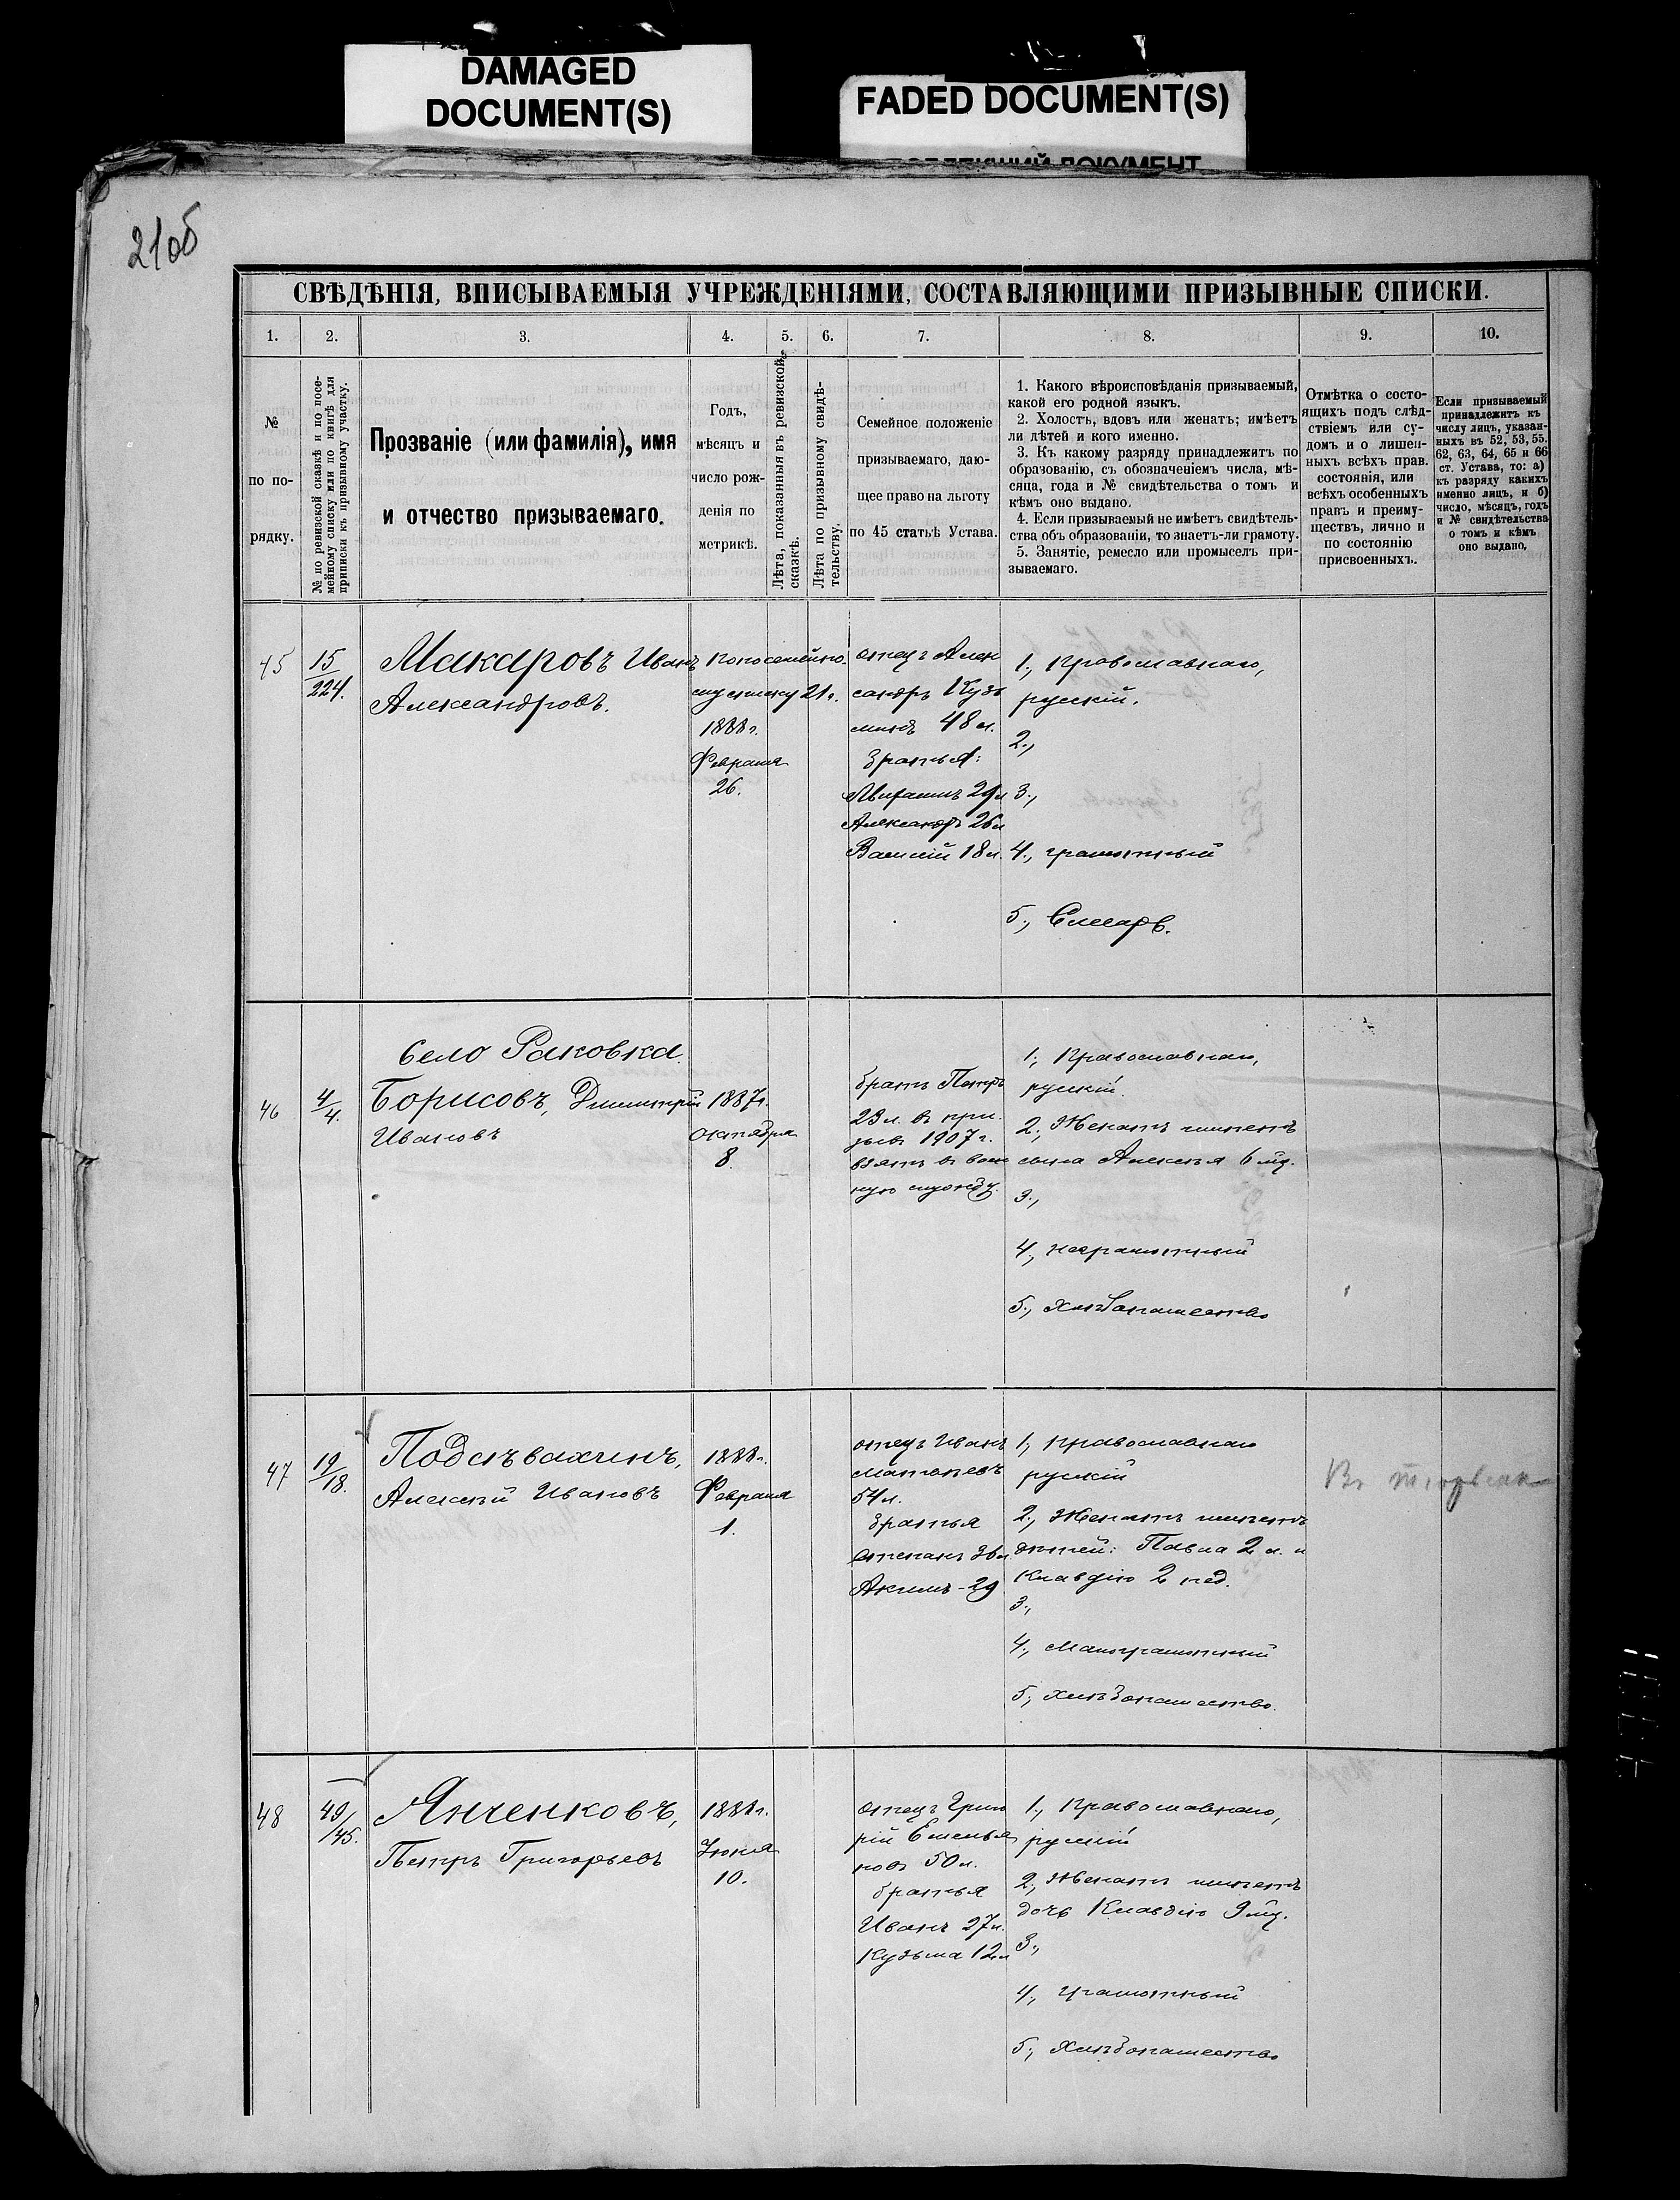 DAMAGED
DOCUMENT(S)
FADED DOCUMENT(S)
21об
СВѢДѢНІЯ, ВПИСЫВАЕМЫЯ УЧРЕЖДЕНІЯМИ, СОСТАВЛЯЮЩИМИ ПРИЗЫВНЫЕ СПИСКИ.
1. 2. 3. 4. 5. 6. 7. 8. 9. 10.
№
по по-
рядку.
№ по ревизской сказкѣ и по посе-
мейному списку или по книгѣ для
приписки къ призывному участку.
Прозваніе (или фамилія), имя
и отчество призываемаго.
Годъ,
мѣсяцъ и
число рож-
денія по
метрикѣ.
Лѣта, показанныя въ ревизской
сказкѣ.
Лѣта по призывному свидѣ-
тельству.
Семейное положеніе
призываемаго, даю-
щее право на льготу
по 45 статьѣ Устава.
1. Какого вѣроисповѣданія призываемый,
какой его родной языкъ.
2. Холостъ, вдовъ или женатъ; имѣетъ
ли дѣтей и кого именно.
3. Къ какому разряду принадлежитъ по
образованію, съ обозначеніемъ числа, мѣ-
сяца, года и № свидѣтельства о томъ и
кѣмъ оно выдано.
4. Если призываемый не имѣетъ свидѣтель-
ства объ образованіи, то знаетъ-ли грамоту.
5. Занятіе, ремесло или промыселъ при-
зываемаго.
Отмѣтка о состо-
ящихъ подъ слѣд-
ствіемъ или су-
домъ и о лишен-
ныхъ всѣхъ прав.
состоянія, или
всѣхъ особенныхъ
правъ и преиму-
ществъ, лично и
по состоянію
присвоенныхъ.
Если призываемый
принадлежитъ къ
числу лицъ, указан-
ныхъ въ 52, 53, 55.
62, 63, 64, 65 и 66
ст. Устава, то: а)
къ разряду какихъ
именно лицъ, и б)
число, мѣсяцъ, годъ
и № свидѣтельства
о томъ и кѣмъ
оно выдано.
45
15/224.
Макаровъ Иванъ
Александровъ.
По посемейно-
му списку 21 г.
1888 г.
Февраля
26.
отецъ Алек
сандръ Кузь
минъ 48 л.
братья:
Александръ 26 л
Василій 18 л.
1., Православнаго,
русскій.
2.,
3.,
4., грамотный
5., Слесарь.
46
4/4.
Село Раковка.
Борисовъ, Дмитрій
Ивановъ
1887 г.
Октября
8.
братъ Петръ
23 л. въ при
зывъ 1907 г.
взятъ въ воен
ную службу.
1., Православнаго,
русскій.
2., Женатъ имѣетъ
сына Алексѣя 6 мѣ.
3.,
4., неграмотный
5., хлѣбопашество
47
19/18.
Подсѣвахинъ,
Алексѣй Ивановъ
1888 г.
Февраля
1.
отецъ Иванъ
54 л.
братья
Степанъ 36 л.
Акимъ - 29
1., Православнаго
русскій
2., Женатъ имѣетъ
дѣтей: Павла 2 л. и
Клавдію 2 нед.
3.,
4., Малограмотный
5., хлѣбопашество.
48
49/45.
Янченковъ,
Петръ Григорьевъ
1888 г.
Іюня
10.
отецъ Григо
рій Емелья
новъ 50 л.
братья
Иванъ 27 л.
Кузьма 12 л
1., Православнаго,
русскій
2., Женатъ имѣетъ
дочь Клавдію 9 мѣ.
3.,
4., грамотный
5., хлѣбопашество